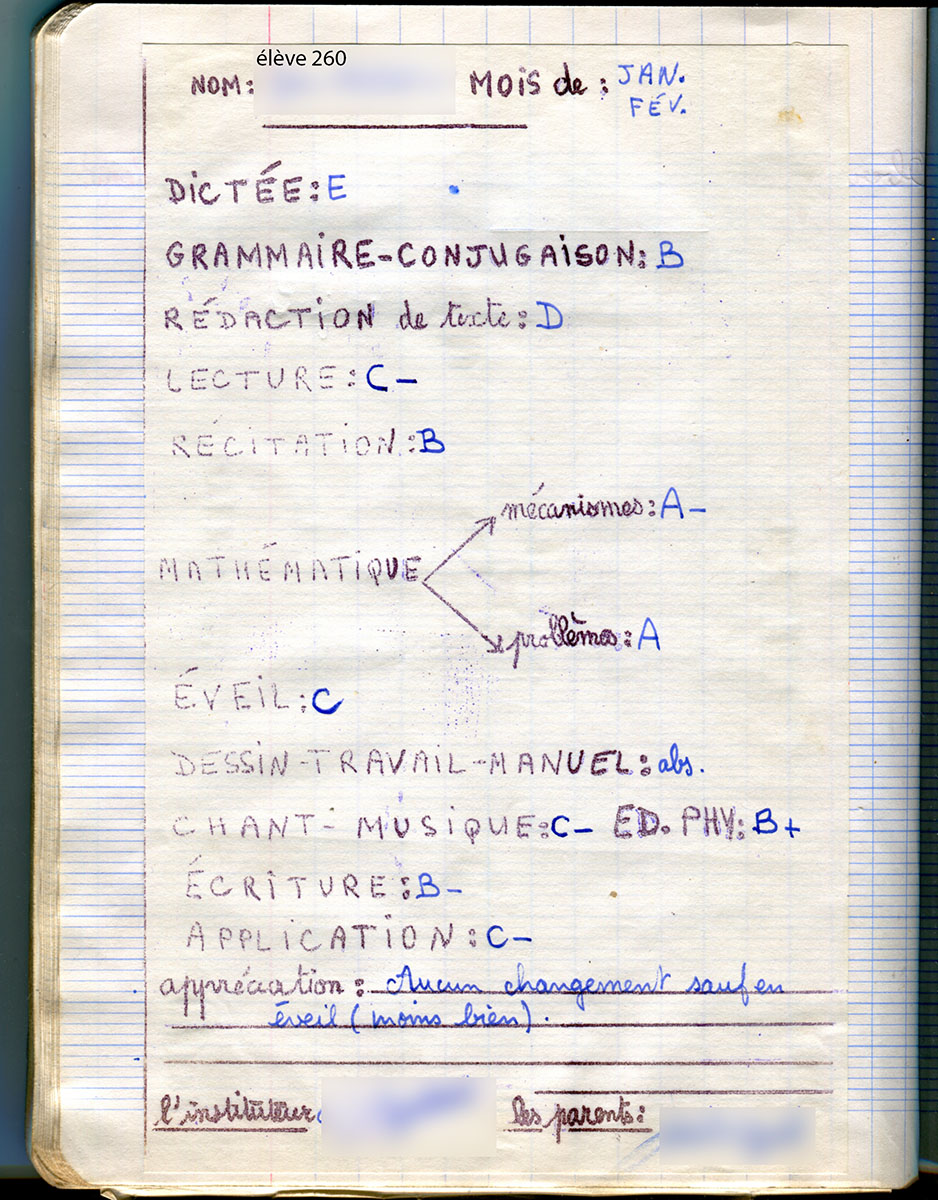 élève 260
NOM: MOIS de : JAN.
FÉV.
DICTÉE: E
GRAMMAIRE-CONJUGAISON: B
RÉDACTION de texte: D
LECTURE: C-
RÉCITATION: B
mécanismes: A-
MATHÉMATIQUE
problèmes: A
ÉVEIL: C
DESSIN-TRAVAIL-MANUEL: abs.
CHANT-MUSIQUE: C- ED. PHY: B+
ÉCRITURE: B-
APPLICATION: C-
appréciation: Aucun changement sauf en
éveil (moins bien).
l'instituteur les parents: